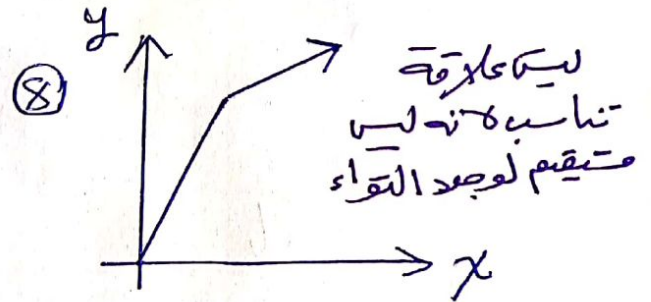 y
8
ليس علاقة
تناسب لانه ليس
مستقيم لوجود التواء
x